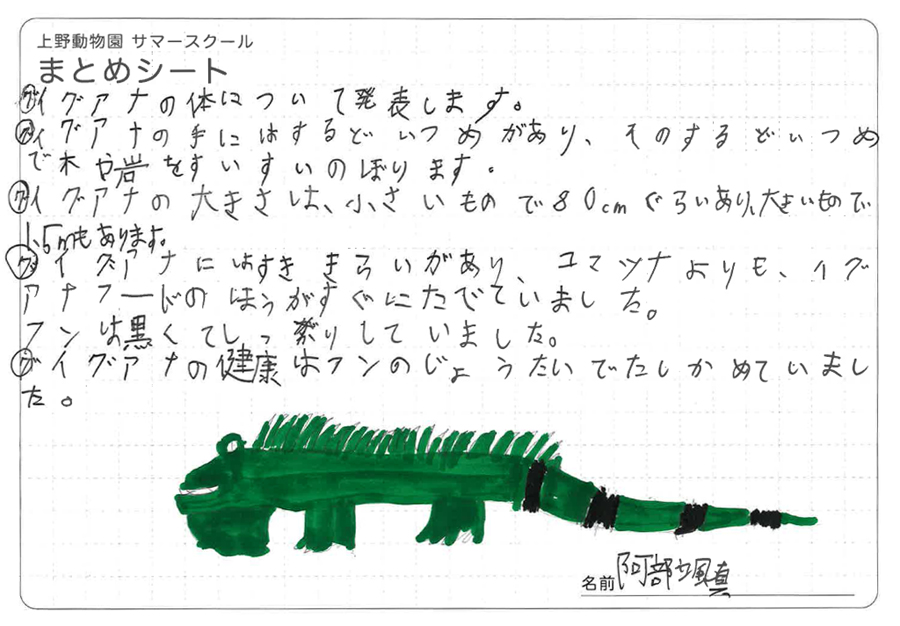 上野動物園 サマースクール
まとめシート
グイグアナの体について発表します。
グイグアナの手にはするどいつめがあり、そのするどいつめ
で木や岩をすいすいのぼります。
グイグアナの大きさは、小さいもので80cmぐらいあり、大きいもので
1.5mもあります。
グイグアナにはすききらいがあり、コマツナよりも、イグ
アナフードのほうがすぐにたべていました。
フンは黒くてしっ
りしていました。
グイグアナの健康はフンのじょうたいでたしかめていまし
た。
名前 阿部颯真